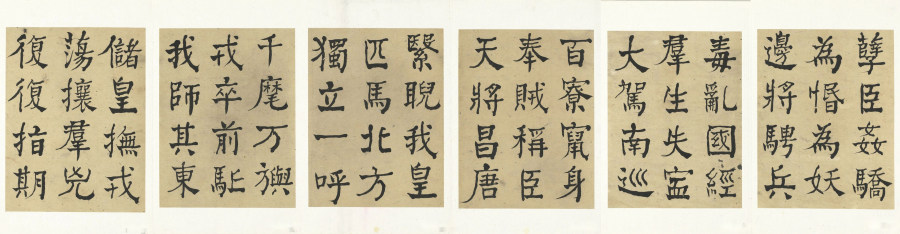 孽臣姦驕
為惛為妖
邊將騁兵
毒亂國經
羣生失寍
大駕南巡
百寮竄身
奉賊稱臣
天將昌唐
繄睨我皇
匹馬北方
獨立一呼
千麾万旟
戎卒前駈
我師其東
儲皇撫戎
蕩攘羣兇
復復指期